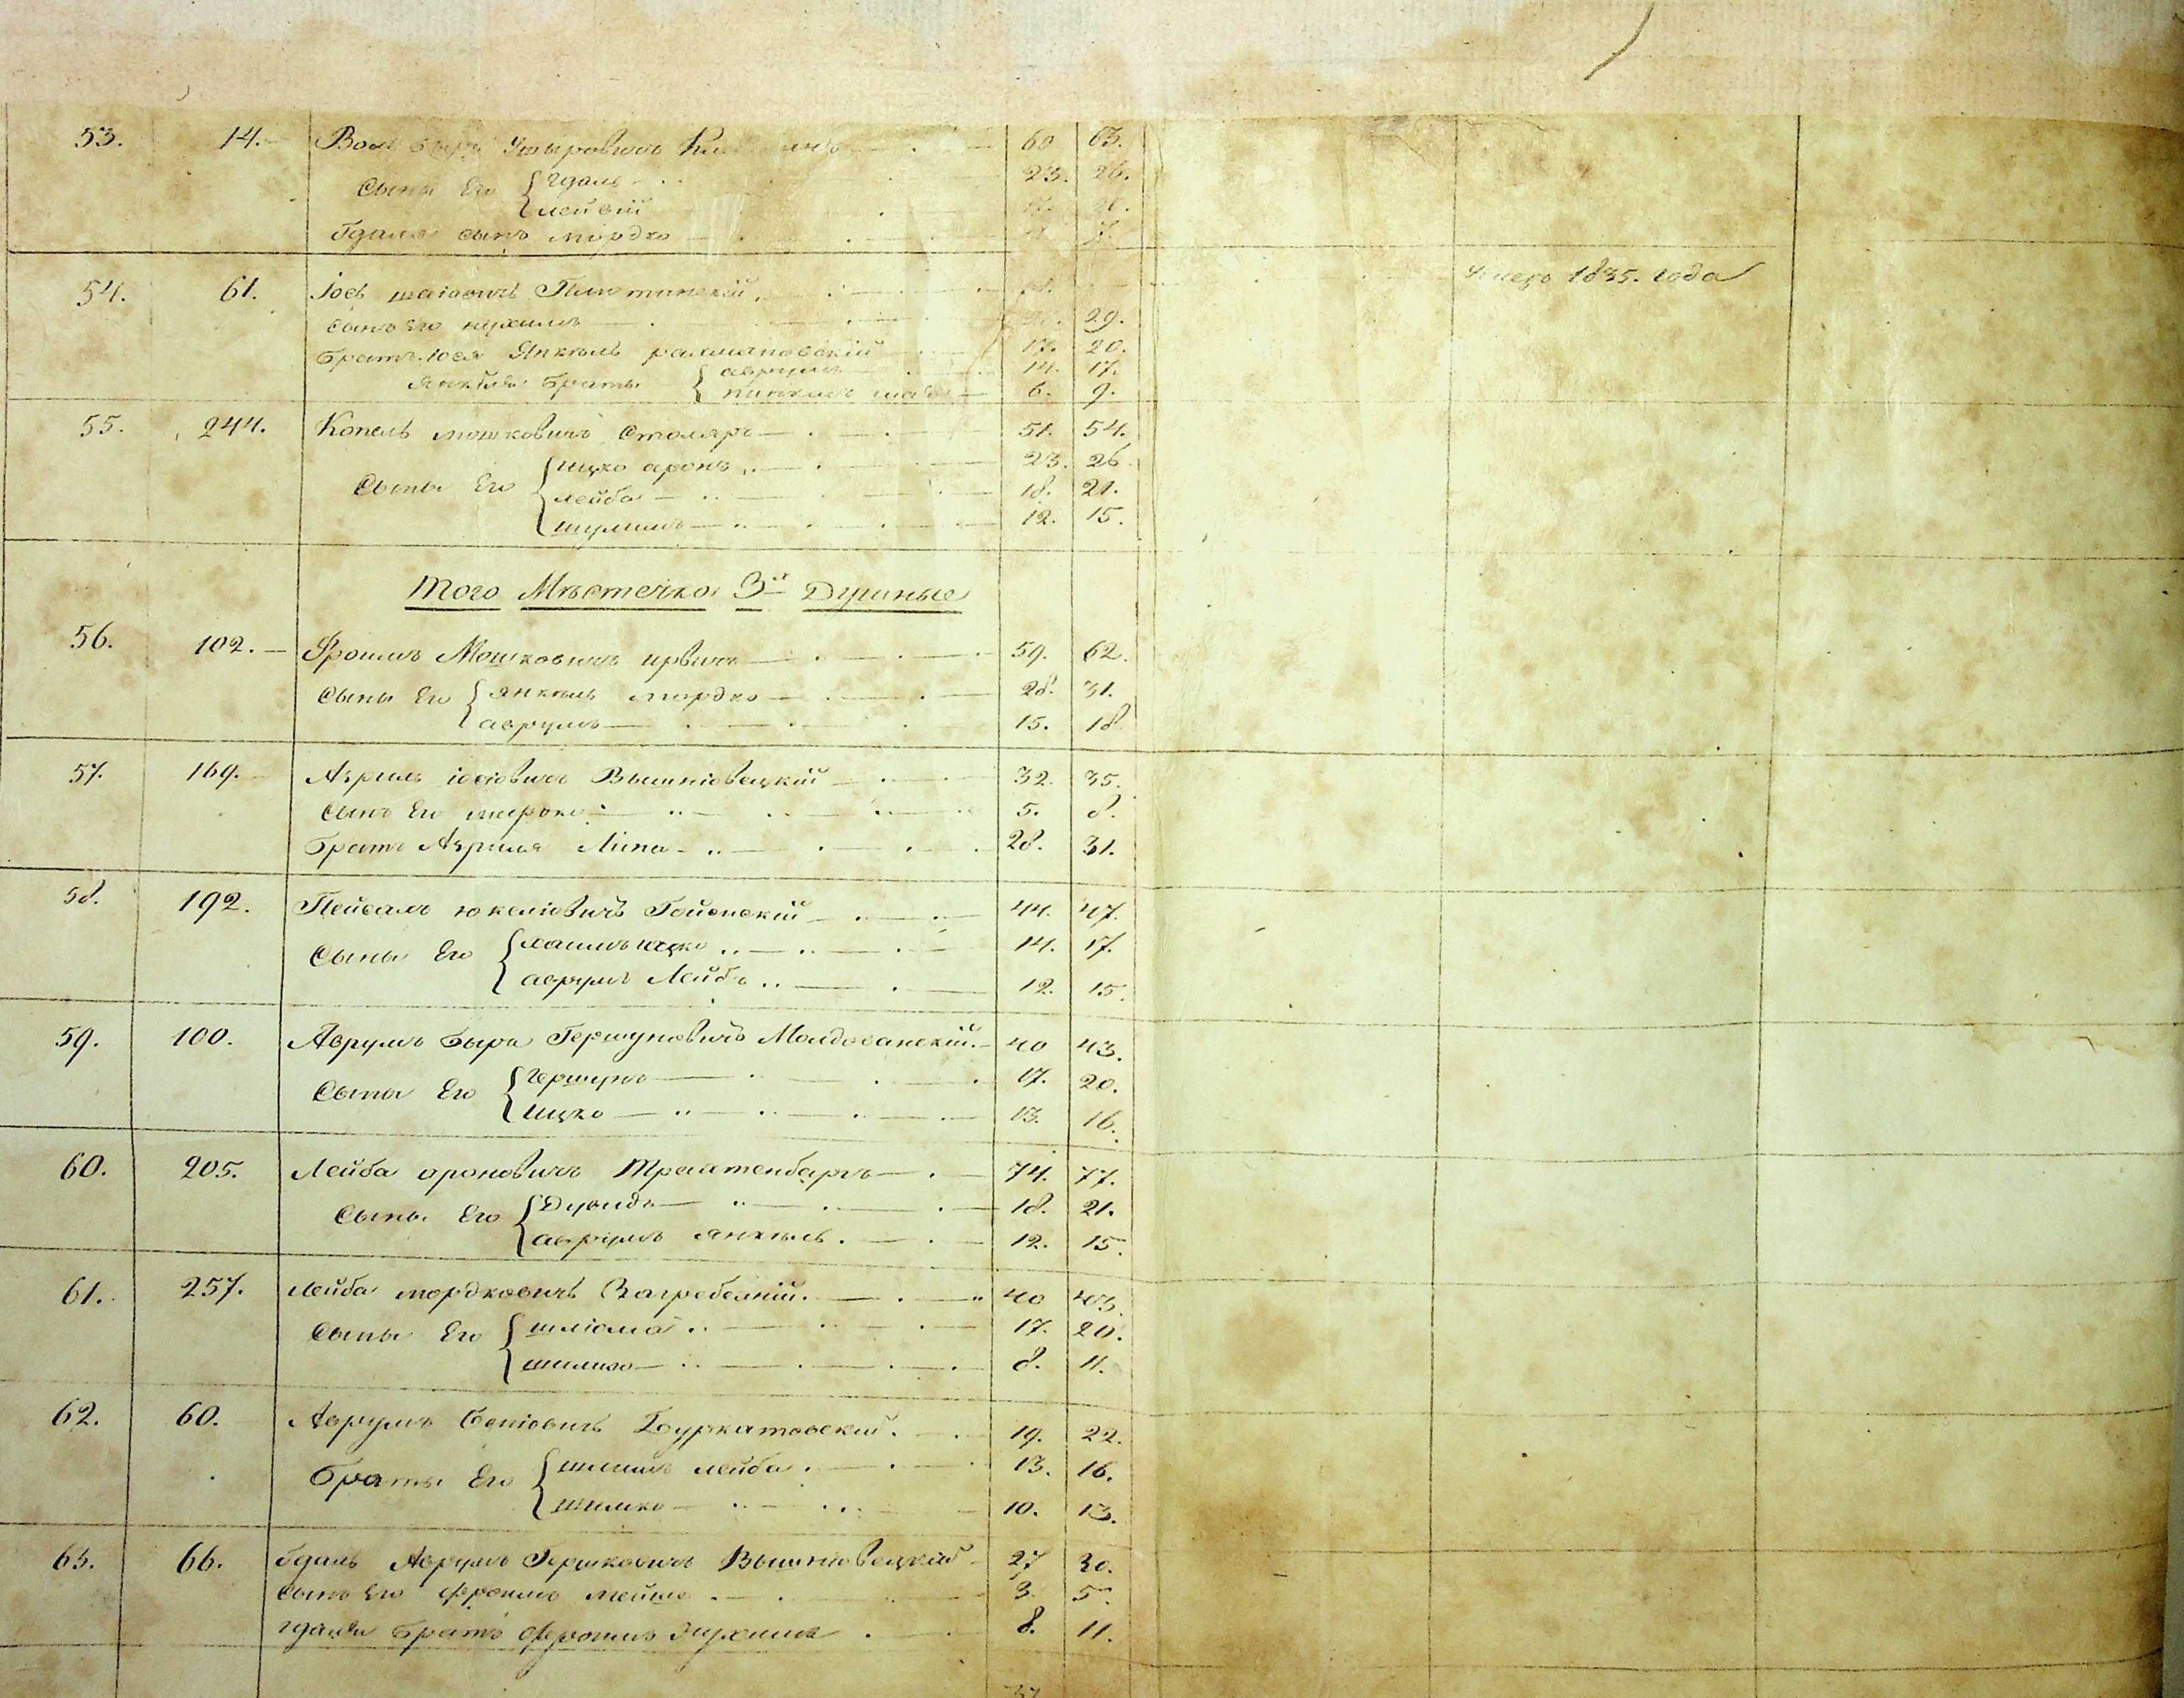 53. 14. 60 63.
Сыны Его Гдаль 23. 26.
Лейвій
Гдаля сынъ мордко
54. 61. Іось шаіовичъ Умеръ 1835. года
Сынъ Его нухимъ 29.
братъ Іося Янкель рахмановскій 17. 20.
Янкеля браты аврумъ 14. 17.
пинхасъ 6. 9.
55. 244. Копель мошковичъ Столяръ 51. 54.
Сыны Его ицко аронъ 23. 26
лейба 18. 21.
шулимъ 12. 15.
Того Мѣстечка 3х Душные
56. 102. Фроимъ Мошковичъ 59. 62.
Сыны Его янкель мордко 28. 31.
аврумъ 15. 18
57. 169. Азриль іосіовичъ Вышніовецкій 32. 35.
Сынъ Его 5. 8.
братъ Азриля Липа 28. 31.
58. 192. Пейсахъ юкеліовичъ Гойснскій 44. 47.
Сыны Его хаимъ ицко 14. 17.
аврумъ Лейба 12. 15.
59. 100. Аврумъ Бырь Гершуновичъ Молдованскій. 40 43.
Сыны Его Гершунъ 17. 20.
ицко 13. 16.
60. 205. Лейба ароновичъ Трахтенбаргъ 74. 77.
Сыны Его Дувидъ 18. 21.
аврумъ янкель 12. 15.
61. 257. лейба мордковичъ Загребелній. 40 43.
Сыны Его шліома 17. 20.
шимшо 8. 11.
62. 60. Аврумъ Беніовичъ Буркатовскій. 19. 22.
браты Его шлима лейба 13. 16.
шимко 10. 13.
63. 66. Гдаль Аврумъ Гершковичъ Вышніовецкій 27 30.
сынъ Его фроимъ мейше 3. 5.
гдаля братъ фроимъ нухимъ 8. 11.